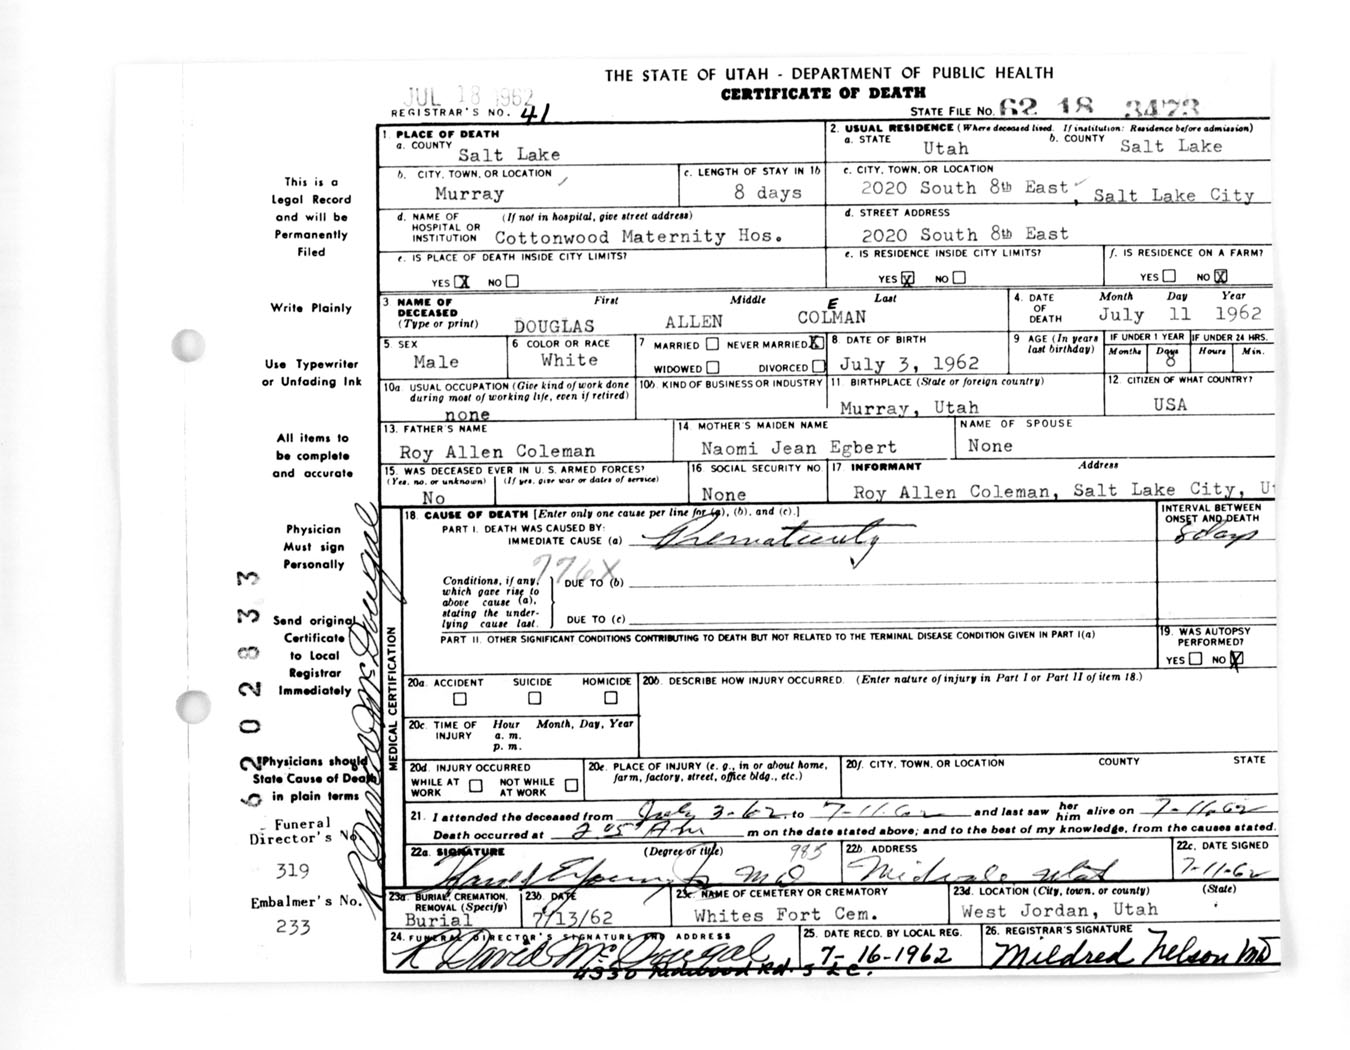 THE STATE OF UTAH - DEPARTMENT OF PUBLIC HEALTH
CERTIFICATE OF DEATH
JUL 18 1962
REGISTRAR'S NO. 41
STATE FILE NO. 62 18 3473
1. PLACE OF DEATH
a. COUNTY Salt Lake
2. USUAL RESIDENCE (Where deceased lived. If institution: Residence before admission)
a. STATE Utah b. COUNTY Salt Lake
b. CITY, TOWN, OR LOCATION Murray
c. LENGTH OF STAY IN 1b 8 days
c. CITY, TOWN, OR LOCATION
2020 South 8th East, Salt Lake City
d. NAME OF HOSPITAL OR INSTITUTION (If not in hospital, give street address)
Cottonwood Maternity Hos.
d. STREET ADDRESS
2020 South 8th East
e. IS PLACE OF DEATH INSIDE CITY LIMITS?
YES X NO
e. IS RESIDENCE INSIDE CITY LIMITS?
YES X NO
f. IS RESIDENCE ON A FARM?
YES NO X
3 NAME OF DECEASED (Type or print)
First Middle Last
DOUGLAS ALLEN COLMAN
E
4. DATE OF DEATH
Month Day Year
July 11 1962
5 SEX
Male
6 COLOR OR RACE
White
7 MARRIED NEVER MARRIED X
WIDOWED DIVORCED
8 DATE OF BIRTH
July 3, 1962
9 AGE (In years last birthday)
IF UNDER 1 YEAR IF UNDER 24 HRS.
Months Days Hours Min.
8
10a USUAL OCCUPATION (Give kind of work done during most of working life, even if retired)
none
10b. KIND OF BUSINESS OR INDUSTRY
11. BIRTHPLACE (State or foreign country)
Murray, Utah
12. CITIZEN OF WHAT COUNTRY?
USA
13. FATHER'S NAME
Roy Allen Coleman
14. MOTHER'S MAIDEN NAME
Naomi Jean Egbert
NAME OF SPOUSE
None
15. WAS DECEASED EVER IN U. S. ARMED FORCES?
(Yes, no, or unknown) (If yes, give war or dates of service)
No
16 SOCIAL SECURITY NO.
None
17. INFORMANT Address
Roy Allen Coleman, Salt Lake City, Ut
18. CAUSE OF DEATH [Enter only one cause per line for (a), (b), and (c).]
INTERVAL BETWEEN ONSET AND DEATH
PART I. DEATH WAS CAUSED BY:
IMMEDIATE CAUSE (a) Prematurity
8 days
776X
Conditions, if any, which gave rise to above cause (a), stating the underlying cause last.
DUE TO (b)
DUE TO (c)
PART II. OTHER SIGNIFICANT CONDITIONS CONTRIBUTING TO DEATH BUT NOT RELATED TO THE TERMINAL DISEASE CONDITION GIVEN IN PART I(a)
19. WAS AUTOPSY PERFORMED?
YES NO X
MEDICAL CERTIFICATION
20a. ACCIDENT SUICIDE HOMICIDE
20b. DESCRIBE HOW INJURY OCCURRED. (Enter nature of injury in Part I or Part II of item 18.)
20c. TIME OF INJURY Hour Month, Day, Year
a. m.
p. m.
20d. INJURY OCCURRED
WHILE AT WORK NOT WHILE AT WORK
20e. PLACE OF INJURY (e. g., in or about home, farm, factory, street, office bldg., etc.)
20f. CITY, TOWN, OR LOCATION COUNTY STATE
21. I attended the deceased from July 3-62, to 7-11-62 and last saw her him alive on 7-11-62
Death occurred at 2 05 AM m on the date stated above; and to the best of my knowledge, from the causes stated.
22a. SIGNATURE (Degree or title) 985
Jr. MD
22b. ADDRESS
Midvale Utah
22c. DATE SIGNED
7-11-62
23a. BURIAL, CREMATION, REMOVAL (Specify)
Burial
23b. DATE
7/13/62
23c. NAME OF CEMETERY OR CREMATORY
Whites Fort Cem.
23d. LOCATION (City, town, or county) (State)
West Jordan, Utah
24. FUNERAL DIRECTOR'S SIGNATURE AND ADDRESS
R David McDougal
4330 Redwood Rd. S L C.
25. DATE RECD. BY LOCAL REG.
7-16-1962
26. REGISTRAR'S SIGNATURE
Mildred Nelson MD
This is a
Legal Record
and will be
Permanently
Filed
Write Plainly
Use Typewriter
or Unfading Ink
All items to
be complete
and accurate
Physician
Must sign
Personally
Send original
Certificate
to Local
Registrar
Immediately
Physicians should
State Cause of Death
in plain terms
Funeral
Director's No.
319
Embalmer's No.
233
62 02833
R David McDougal